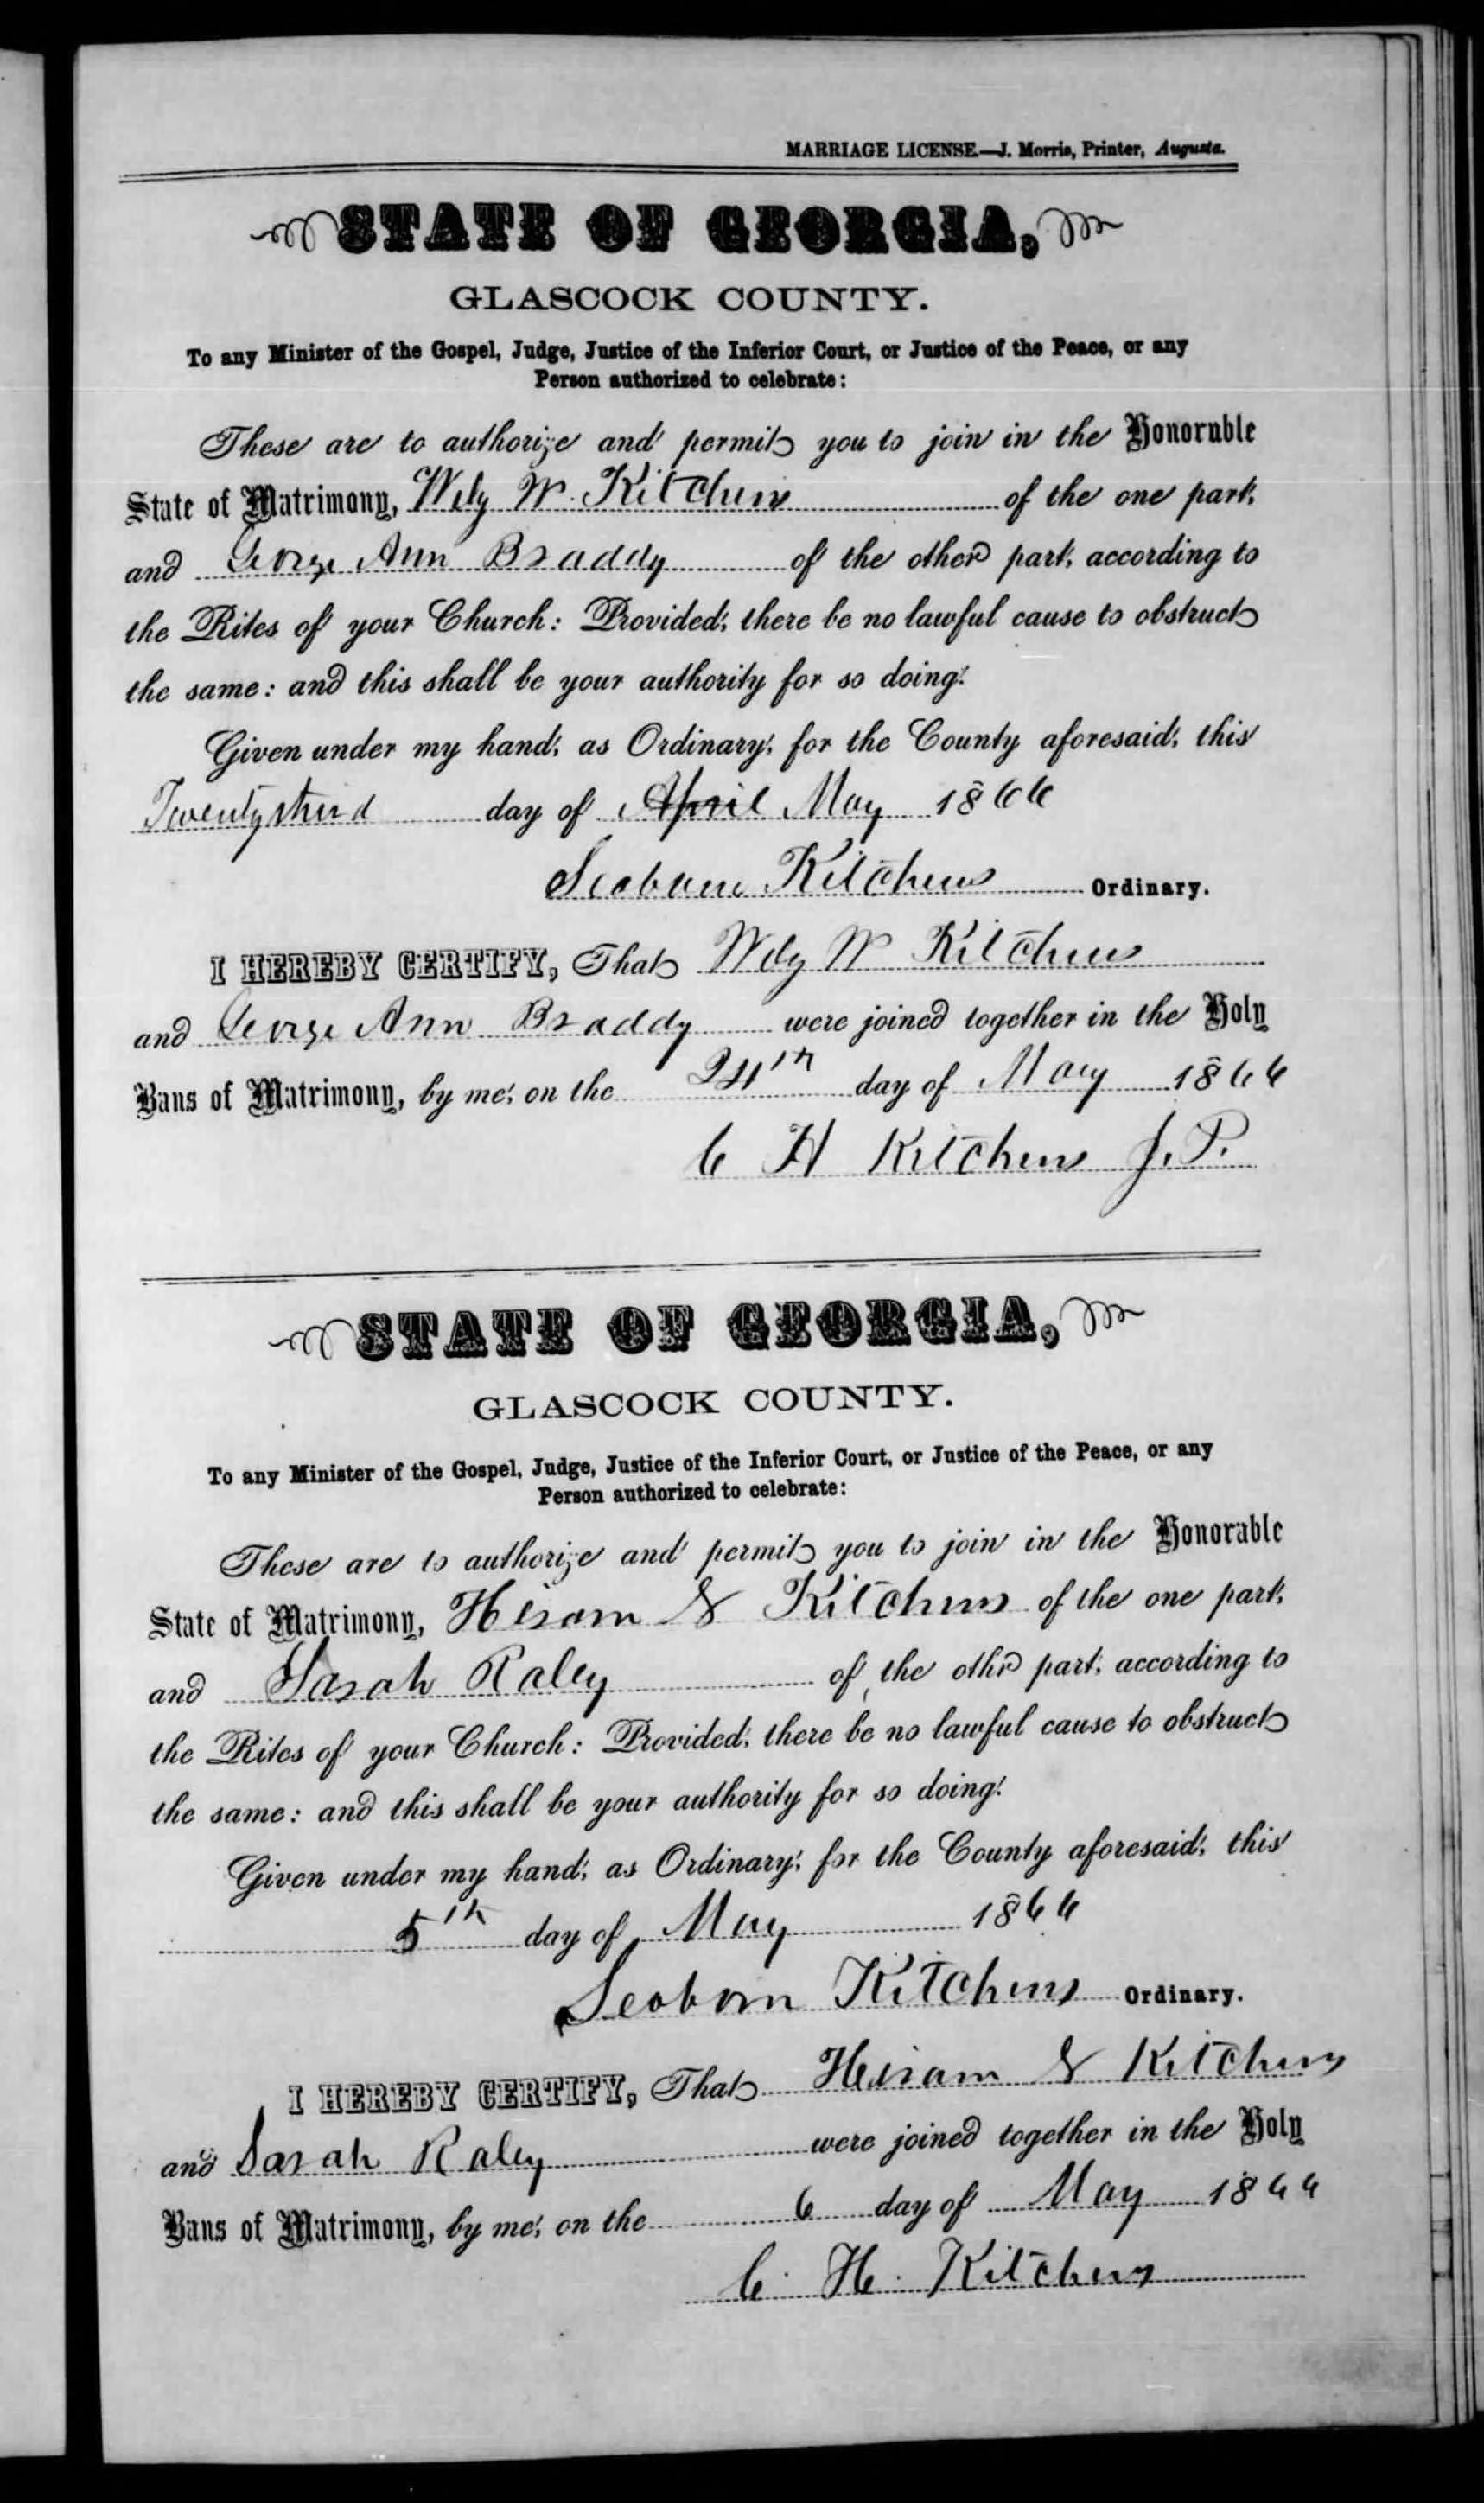 MARRIAGE LICENSE.—J. Morris, Printer, Augusta.
STATE OF GEORGIA,
GLASCOCK COUNTY.
To any Minister of the Gospel, Judge, Justice of the Inferior Court, or Justice of the Peace, or any
Person authorized to celebrate:
These are to authorize and permit you to join in the Honorable
State of Matrimony, Wily W. Kitchens of the one part,
and George Ann Braddy of the other part, according to
the Rites of your Church: Provided, there be no lawful cause to obstruct
the same: and this shall be your authority for so doing.
Given under my hand, as Ordinary, for the County aforesaid, this
Twenty third day of April May 1866
Seaborn Kitchens Ordinary.
I HEREBY CERTIFY, That Wily W Kitchens
and George Ann Braddy were joined together in the Holy
Bans of Matrimony, by me, on the 24th day of May 1866
C H Kitchens J.P.
STATE OF GEORGIA,
GLASCOCK COUNTY.
To any Minister of the Gospel, Judge, Justice of the Inferior Court, or Justice of the Peace, or any
Person authorized to celebrate:
These are to authorize and permit you to join in the Honorable
State of Matrimony, Hiram Kitchens of the one part,
and Sarah Raley of the other part, according to
the Rites of your Church: Provided, there be no lawful cause to obstruct
the same: and this shall be your authority for so doing.
Given under my hand, as Ordinary, for the County aforesaid, this
5th day of May 1866
Seaborn Kitchens Ordinary.
I HEREBY CERTIFY, That Hiram Kitchens
and Sarah Raley were joined together in the Holy
Bans of Matrimony, by me, on the 6 day of May 1866
C. H. Kitchens